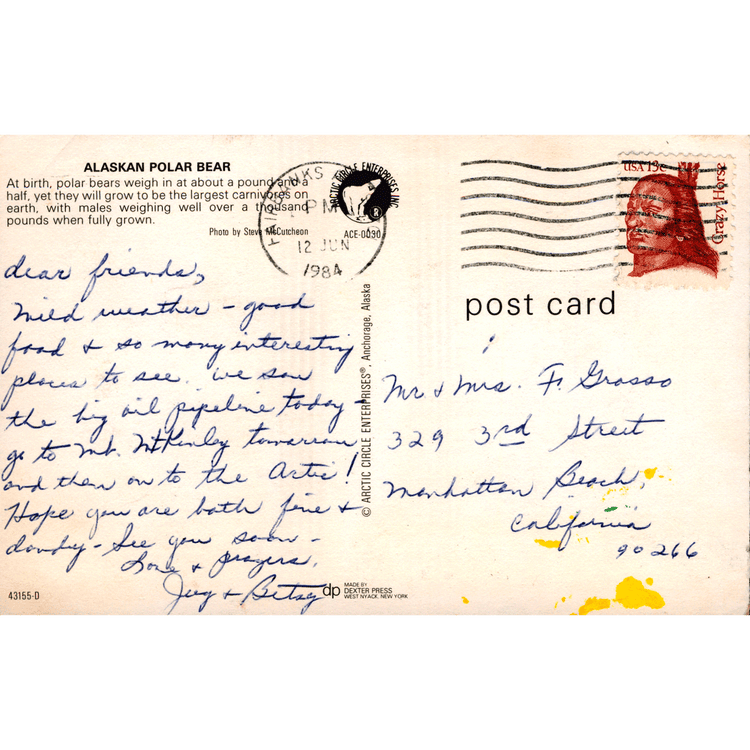 ALASKAN POLAR BEAR
At birth, polar bears weigh in at about a pound and a
half, yet they will grow to be the largest carnivores on
earth, with males weighing well over a thousand
pounds when fully grown.
Photo by Steve McCutcheon
ACE-0030
ARCTIC CIRCLE ENTERPRISES INC
FAIRBANKS
PM
12 JUN
1984
USA 13c
Crazy Horse
post card
dear friends,
Mild weather - good
food & so many interesting
places to see. we saw
the big oil pipeline today
go to Mt. McKinley tomorrow
and then on to the Artic!
Hope you are both fine &
dandy - See you soon -
Love & prayers,
& Betsy
Mr & Mrs. F. Grasso
329 3rd Street
Manhattan Beach,
California
90266
© ARCTIC CIRCLE ENTERPRISES®, Anchorage, Alaska
43155-D
dp
MADE BY
DEXTER PRESS
WEST NYACK, NEW YORK